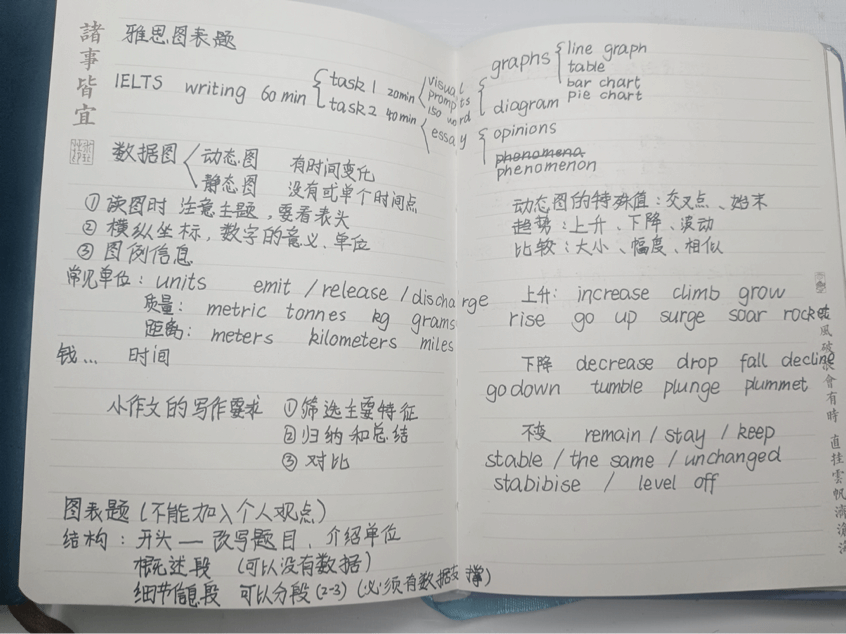 諸事皆宜
雅思图表题
IELTS writing 60 min { task 1 20min < visual prompts 150 word
task 2 40min < essay
数据图 < 动态图 有时间变化
静态图 没有或单个时间点
① 读图时 注意主题，要看表头
② 横纵坐标，数字的意义、单位
③ 图例信息
常见单位：units emit / release / discharge
质量：metric tonnes kg grams
距离：meters kilometers miles
钱... 时间
小作文的写作要求 ① 筛选主要特征
② 归纳和总结
③ 对比
图表题（不能加入个人观点）
结构：开头 — 改写题目、介绍单位
概述段（可以没有数据）
细节信息段 可以分段(2-3)（必须有数据支撑）
graphs { line graph
table
bar chart
pie chart
diagram
opinions
phenomena
phenomenon
动态图的特殊值：交叉点、始末
趋势：上升、下降、波动
比较：大小、幅度、相似
上升：increase climb grow
rise go up surge soar rocket
下降 decrease drop fall decline
go down tumble plunge plummet
不变 remain / stay / keep
stable / the same / unchanged
stabibise / level off
風破 會有時 直挂雲帆濟滄海